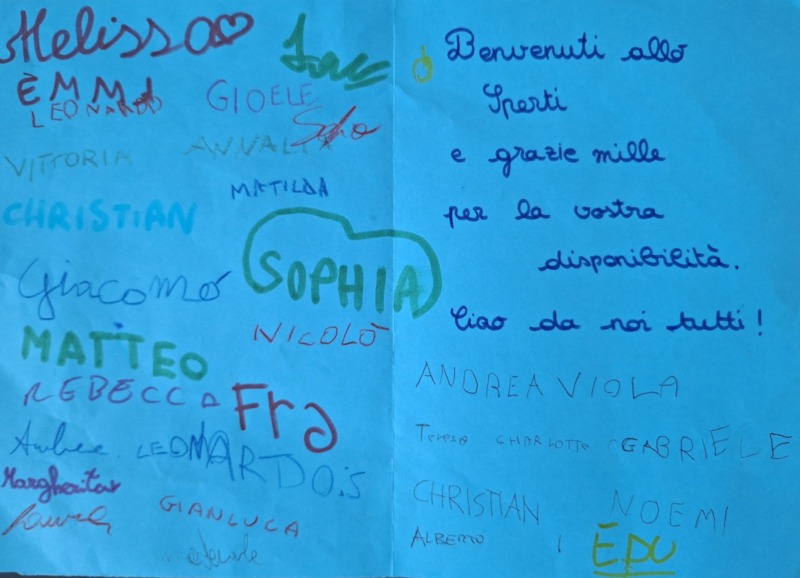 Melissa
ÈMMA
LEONARDO
GIOELE
VITTORIA
ANNALISA
MATILDA
CHRISTIAN
SOPHIA
Giacomo
NICOLÒ
MATTEO
REBECCA
Fra
LEONARDO.S
Margherita
GIANLUCA
Benvenuti allo
Sperti
e grazie mille
per la vostra
disponibilità.
Ciao da noi tutti!
ANDREA VIOLA
Teresa CHARLOTTE GABRIELE
CHRISTIAN NOEMI
ALBERTO